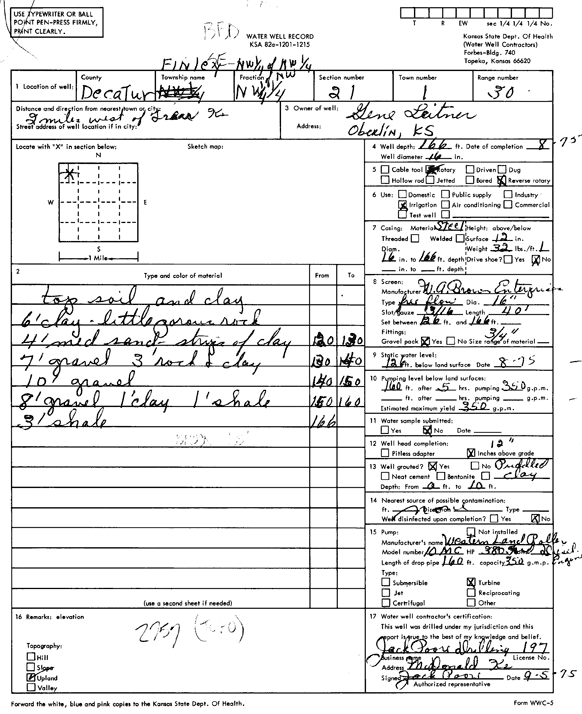 USE TYPEWRITER OR BALL
POINT PEN-PRESS FIRMLY,
PRINT CLEARLY.
WATER WELL RECORD
KSA 82a-1201-1215
T R EW sec 1/4 1/4 1/4 No.
Kansas State Dept. Of Health
(Water Well Contractors)
Forbes-Bldg. 740
Topeka, Kansas 66620
1 Location of well: County Township name Fraction Section number Town number Range number
Decatur NW 1/4 21 1 30
Distance and direction from nearest town or city:
2 miles west of Ks
Street address of well location if in city:
3 Owner of well: Gene Leitner
Address: Oberlin, KS
Locate with "X" in section below: Sketch map:
N
X
W E
S
1 Mile
4 Well depth: 166 ft. Date of completion 8-75
Well diameter 16 in.
5 Cable tool Rotary Driven Dug
Hollow rod Jetted Bored X Reverse rotary
6 Use: Domestic Public supply Industry
X Irrigation Air conditioning Commercial
Test well
7 Casing: Material Steel Height: above/below
Threaded Welded Surface 12 in.
Diam. Weight 32 lbs./ft.
16 in. to 166 ft. depth Drive shoe? Yes X No
in. to ft. depth
2 Type and color of material From To
top soil and clay
6' clay - little porous rock
4' med sand - strips of clay 120 130
7' gravel 3' rock & clay 130 140
10' gravel 140 150
8' gravel 1' clay 1' shale 150 160
3' shale 166
(use a second sheet if needed)
8 Screen:
Manufacturer W.A. Brown Enterprises
Type free flow Dia. 16"
Slot/gauze 13/16 Length 40'
Set between 126 ft. and 166 ft.
Fittings: 3/4"
Gravel pack X Yes No Size range of material
9 Static water level:
126 ft. below land surface Date 8-75
10 Pumping level below land surfaces:
160 ft. after 5 hrs. pumping 350 g.p.m.
ft. after hrs. pumping g.p.m.
Estimated maximum yield 350 g.p.m.
11 Water sample submitted:
Yes X No Date
12 Well head completion: 12"
Pitless adapter X Inches above grade
13 Well grouted? X Yes No Puddled
Neat cement Bentonite clay
Depth: From 0 ft. to 10 ft.
14 Nearest source of possible contamination:
ft. Direction Type
Well disinfected upon completion? Yes X No
15 Pump: Not installed
Manufacturer's name Western Land Roller
Model number 10MC HP
Length of drop pipe 160 ft. capacity 350 g.m.p.
Type:
Submersible X Turbine
Jet Reciprocating
Certrifugal Other
16 Remarks: elevation
(TOPO)
Topography:
Hill
Slope
X Upland
Valley
17 Water well contractor's certification:
This well was drilled under my jurisdiction and this
report is true to the best of my knowledge and belief.
Jack Poore Drilling 197
Business name License No.
Address McDonald Ks
Signed Jack Poore Date 9-5-75
Authorized representative
Forward the white, blue and pink copies to the Kansas State Dept. Of Health. Form WWC-5